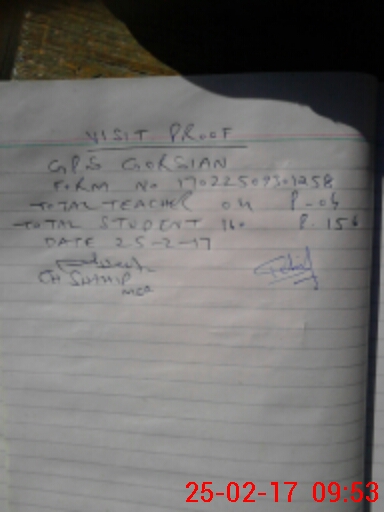 VISIT PROOF
GPS GORSIAN
FORM NO 17022509301258
TOTAL TEACHER 04 P-04
TOTAL STUDENT 160 P. 156
DATE 25-2-17
CH
25-02-17 09:53